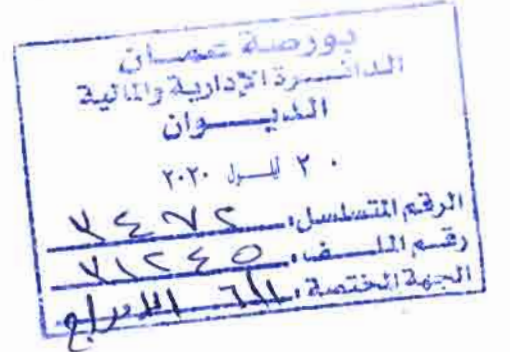 بورصة عمان
الدائرة الإدارية والمالية
الديوان
٢٠ ايلول ٢٠٢٠
الرقم المتسلسل:
رقم الملف:
الجهة المختصة: الادراج